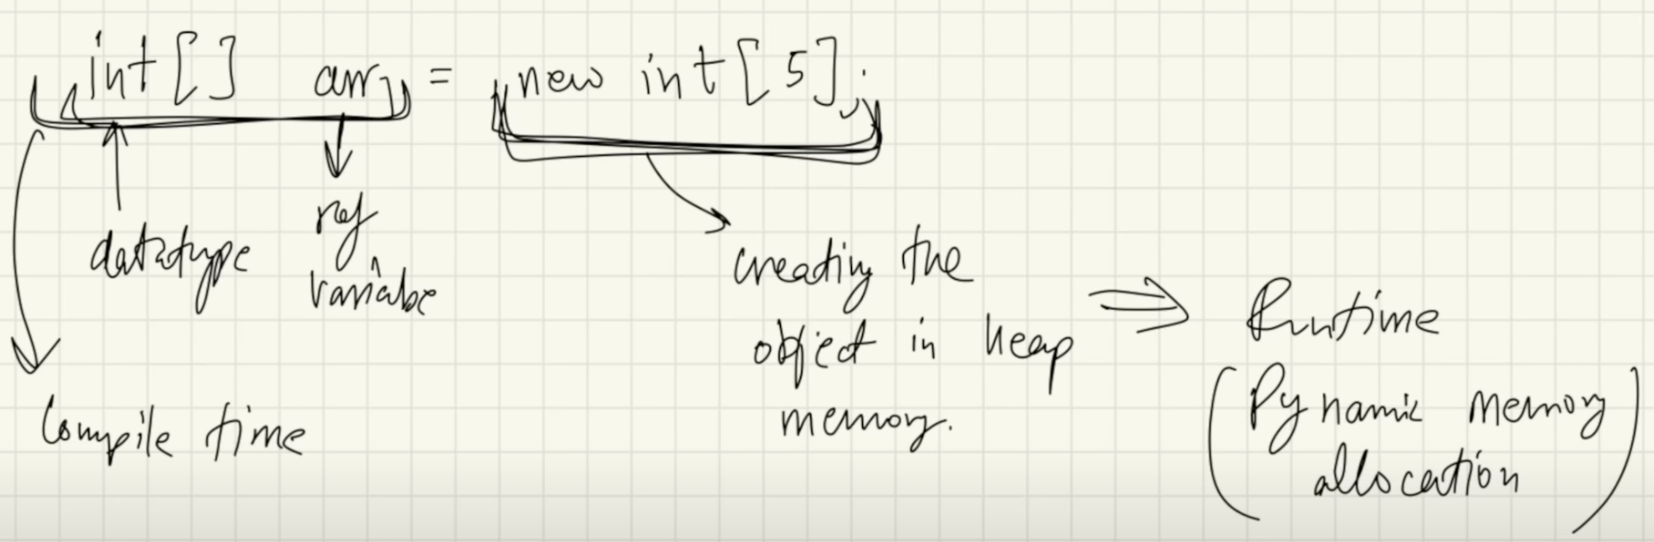 int[] arr = new int[5];
datatype
ref
variable
Compile time
creating the
object in heap
memory.
⇒ Runtime
(Dynamic memory
allocation)